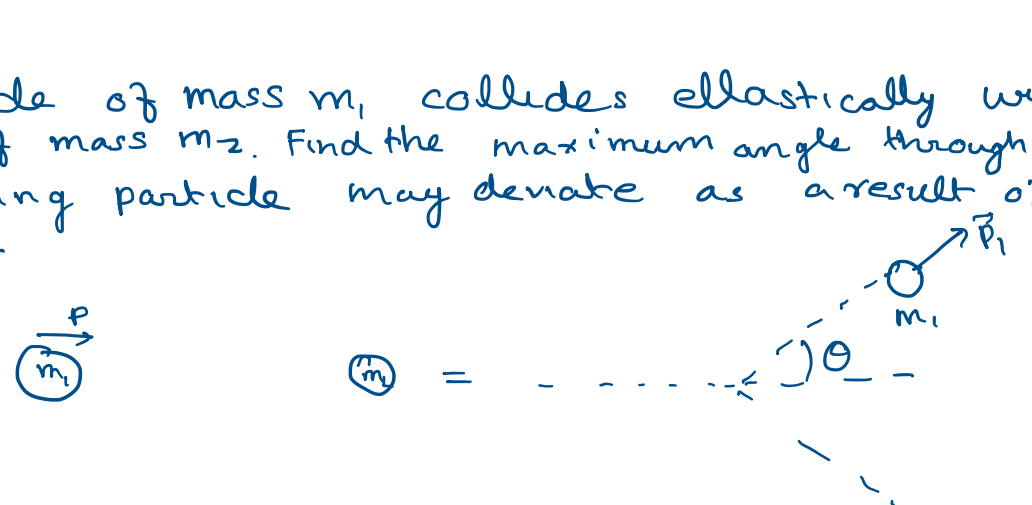 de of mass m₁ collides ellastically
mass m₂. Find the maximum angle through
ng particle may deviate as a result
p⃗₁
m₁
P
m₁
m₂
=
θ